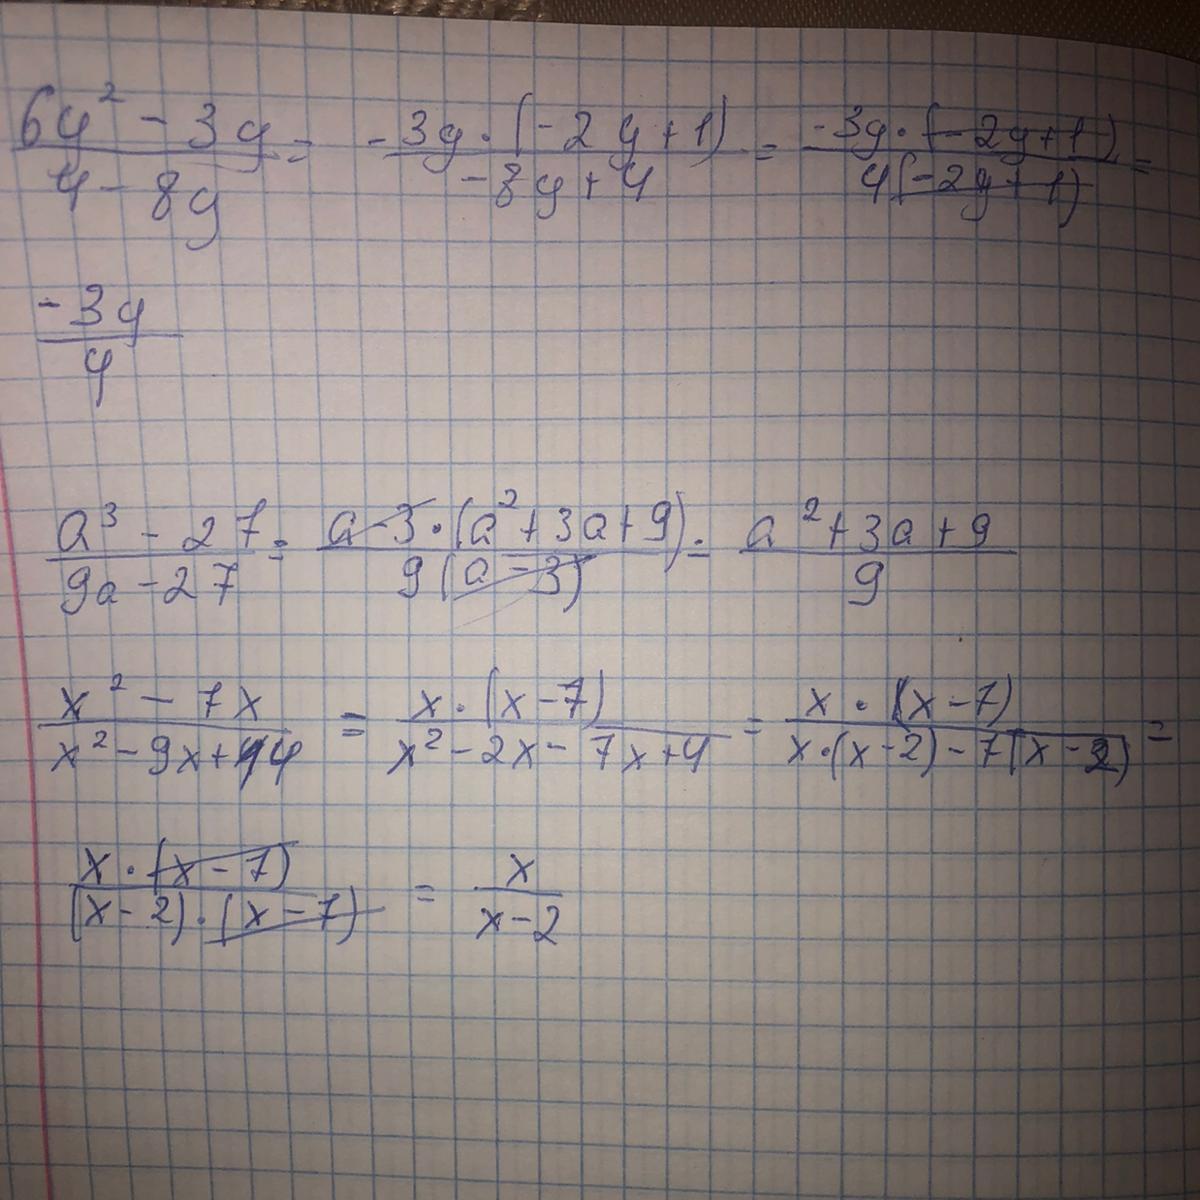 (6y² - 3y)/(4 - 8y) = (-3y·(-2y+1))/(-8y+4) = (-3y·(-2y+1))/(4(-2y+1)) =
(-3y)/4
(a³ - 27)/(9a - 27) = (a-3·(a²+3a+9))/(9(a-3)) = (a²+3a+9)/9
(x² - 7x)/(x² - 9x+14) = (x·(x-7))/(x² - 2x - 7x+4) = (x·(x-7))/(x·(x-2)-7(x-2)) =
(x·(x-7))/((x-2)·(x-7)) = x/(x-2)